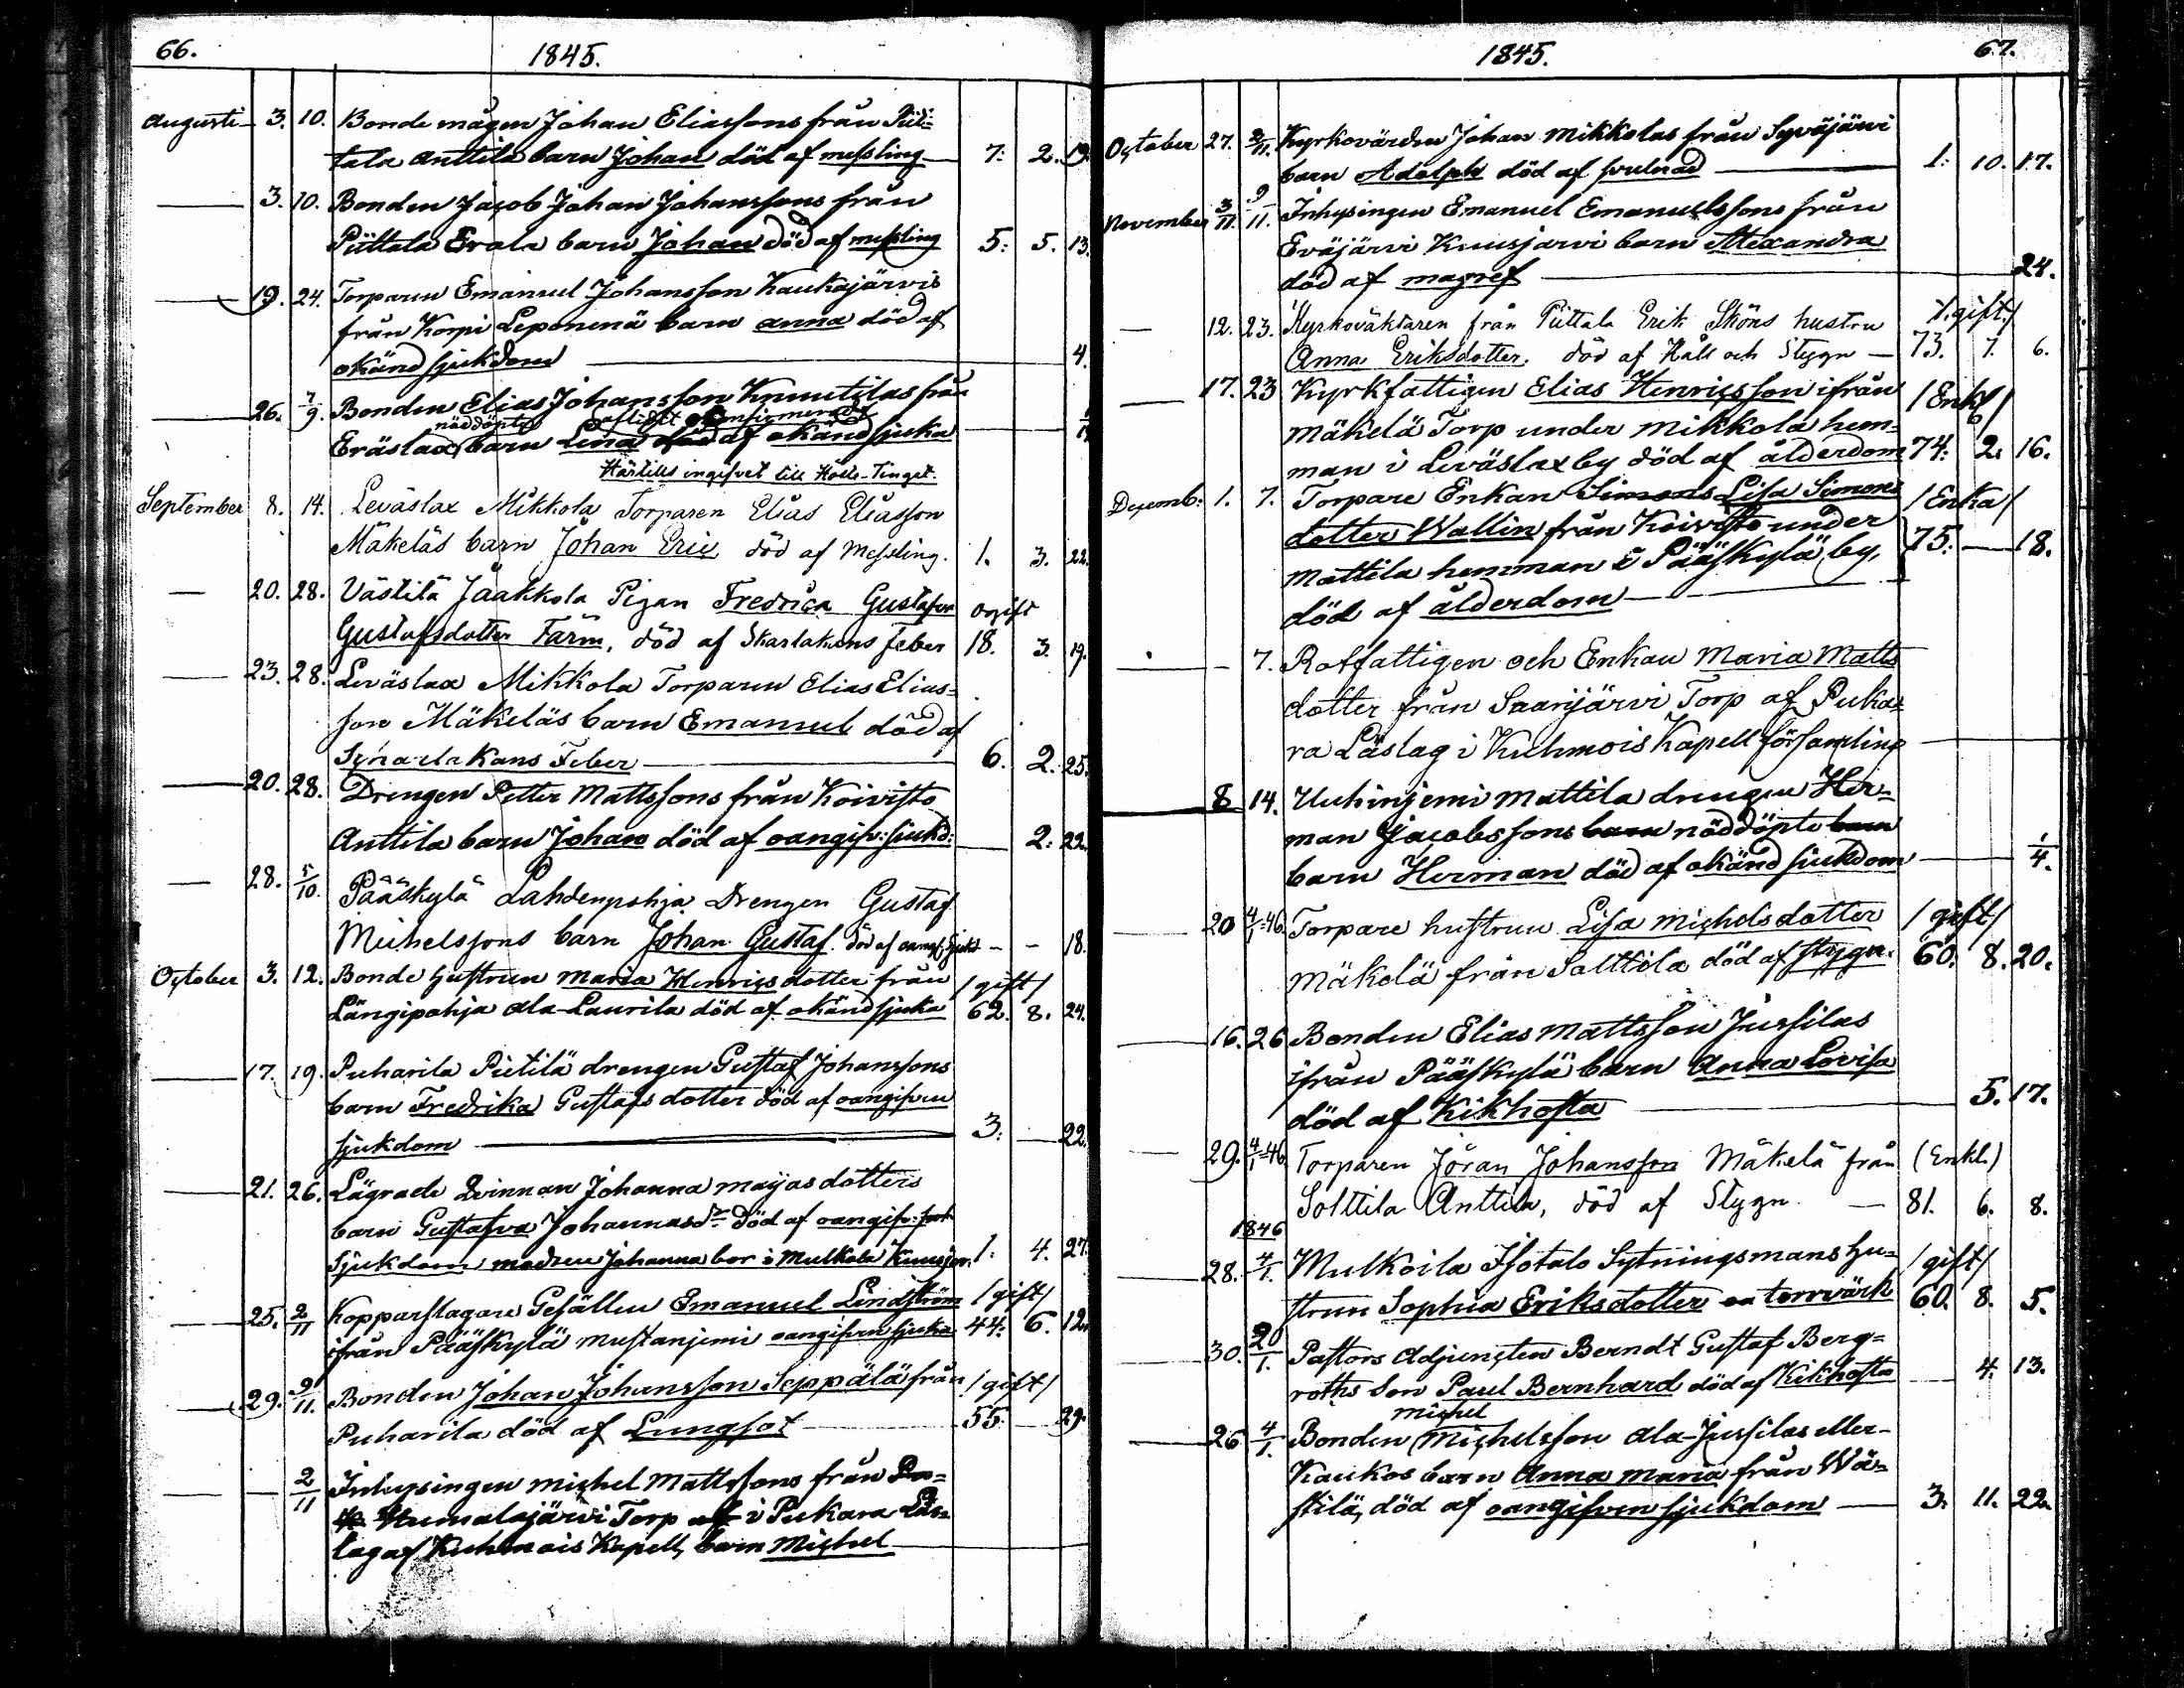 66.
1845.
Augusti 3. 10. Bonde mågen Johan Eliassons från Piit-
tala Anttila barn Johan död af messling 7: 2. 19.
3. 10. Bonden Jacob Johan Johanssons från
Piittala Erola barn Johan död af messling 5: 5. 13.
19. 24. Torparen Emanuel Johansson Kaukajärvis
från Korpi Leponenä barn Anna död af
okänd sjukdom 4.
26. 7/9. Bonden Elias Johansson Knuutilas från
nöddöpte
Eräslax barn Lina död af okänd sjuka
Härtills ingifvet till Höste-Tinget.
September 8. 14. Leväslax Mikkola Torparen Elias Eliasson
Mäkeläs barn Johan Eric död af Messling. 1. 3. 22.
20. 28. Västilä Jaakkola Pigan Fredrica Gustafva ogift
Gustafsdotter Färm, död af Skarlakans feber 18. 3. 19.
23. 28. Leväslax Mikkola Torparen Elias Elias-
son Mäkeläs barn Emanuel död af
Scharlakans Feber 6. 2. 25.
20. 28. Drengen Petter Mattssons från Koivisto
Anttila barn Johan död af oangifv: sjukd: 2: 22.
28. 5/10. Pääskylä Lahdenpohja Drengen Gustaf
Michelssons barn Johan Gustaf. död af oangf. sjukd. - - 18.
October 3. 12. Bonde hustrun Maria Henricsdotter från /gift/
Längipohja Ala-Laurila död af okänd sjuka 62. 8. 24.
17. 19. Puharila Pietilä drengen Gustaf Johanssons
barn Fredrika Gustafsdotter död af oangifven
sjukdom 3: 22.
21. 26. Lägrade Qvinnan Johanna Majasdotters
barn Gustafva Johannasdr död af oangifv:
Sjukdom, modren Johanna bor i Mulkola Kuusjerv. 1. 4. 27.
25. 2/11 Kopparslagare Gesällen Emanuel Lindström /gift/
ifrån Pääskylä Mustanjemi oangifven sjuka 44: 6. 12.
29. 9/11. Bonden Johan Johansson Seppälä från /gift/
Puharila död af Lungsot 55. 29.
2/11 Inhysingen Michel Mattssons från
Humalajärvi Torp i Pukara Läs-
lag af Kuhmois Kapell, barn Michel
1845.
67.
October 27. 2/11. Kyrkovärden Johan Mikkolas från Syväjärvi
barn Adolph död af svulnad 1: 10. 17.
November 3/11. 9/11. Inhysingen Emanuel Emanuelssons från
Eväjärvi Kuusjarvi barn Alexandra
död af magref 24.
12. 23. Kyrkoväktaren från Piittala Erik Sköns hustru /gift/
Anna Eriksdotter. död af Håll och Stygn 73. 7. 6.
17. 23 Kyrkfattigen Elias Henricsson ifrån /Enkl/
Mäkelä Torp under Mikkola hem-
man i Leväslax by död af ålderdom 74: 2. 16.
Decemb: 1. 7. Torpare Enkan Simons Lisa Simons /Enka/
dotter Wallin från Koivisto under
Mattila hemman i Pääskylä by, 75. 18.
död af ålderdom
7. Rotfattigen och Enkan Maria Matts
dotter från Saarijärvi Torp af Puka-
ra Läslag i Kuhmois Kapell församling
8 14. Uuhinjemi Mattila drengen Her-
man Jacobssons barn nöddöpte barn
barn Herman död af okänd sjukdom 1/4.
20 4/1-46. Torpare hustrun Lisa Michelsdotter /gift/
Mäkelä från Salttila död af stygn. 60. 8. 20.
16. 26 Bonden Elias Mattsson Jussilas
ifrån Pääskylä barn Anna Lovisa
död af Kikhosta 5. 17.
29. 4/1-46 Torparen Jöran Johansson Mäkelä från (Enkl.)
Solttila Anttila, död af Stygn. 81. 6. 8.
1846
28. 4/1. Mulkoila Isotalo Sytningsmans hu- /gift/
strun Sophia Eriksdotter torrvärk 60. 8. 5.
30. 20/1. Pastors Adjuncten Berndt Gustaf Berg-
roths Son Paul Bernhard död af Kikhosta 4. 13.
Michel
26 4/1. Bonden Michelsson Ala-Jussilas eller
Kaukos barn Anna Maria från Wä-
stilä, död af oangifven sjukdom 3. 11. 22.